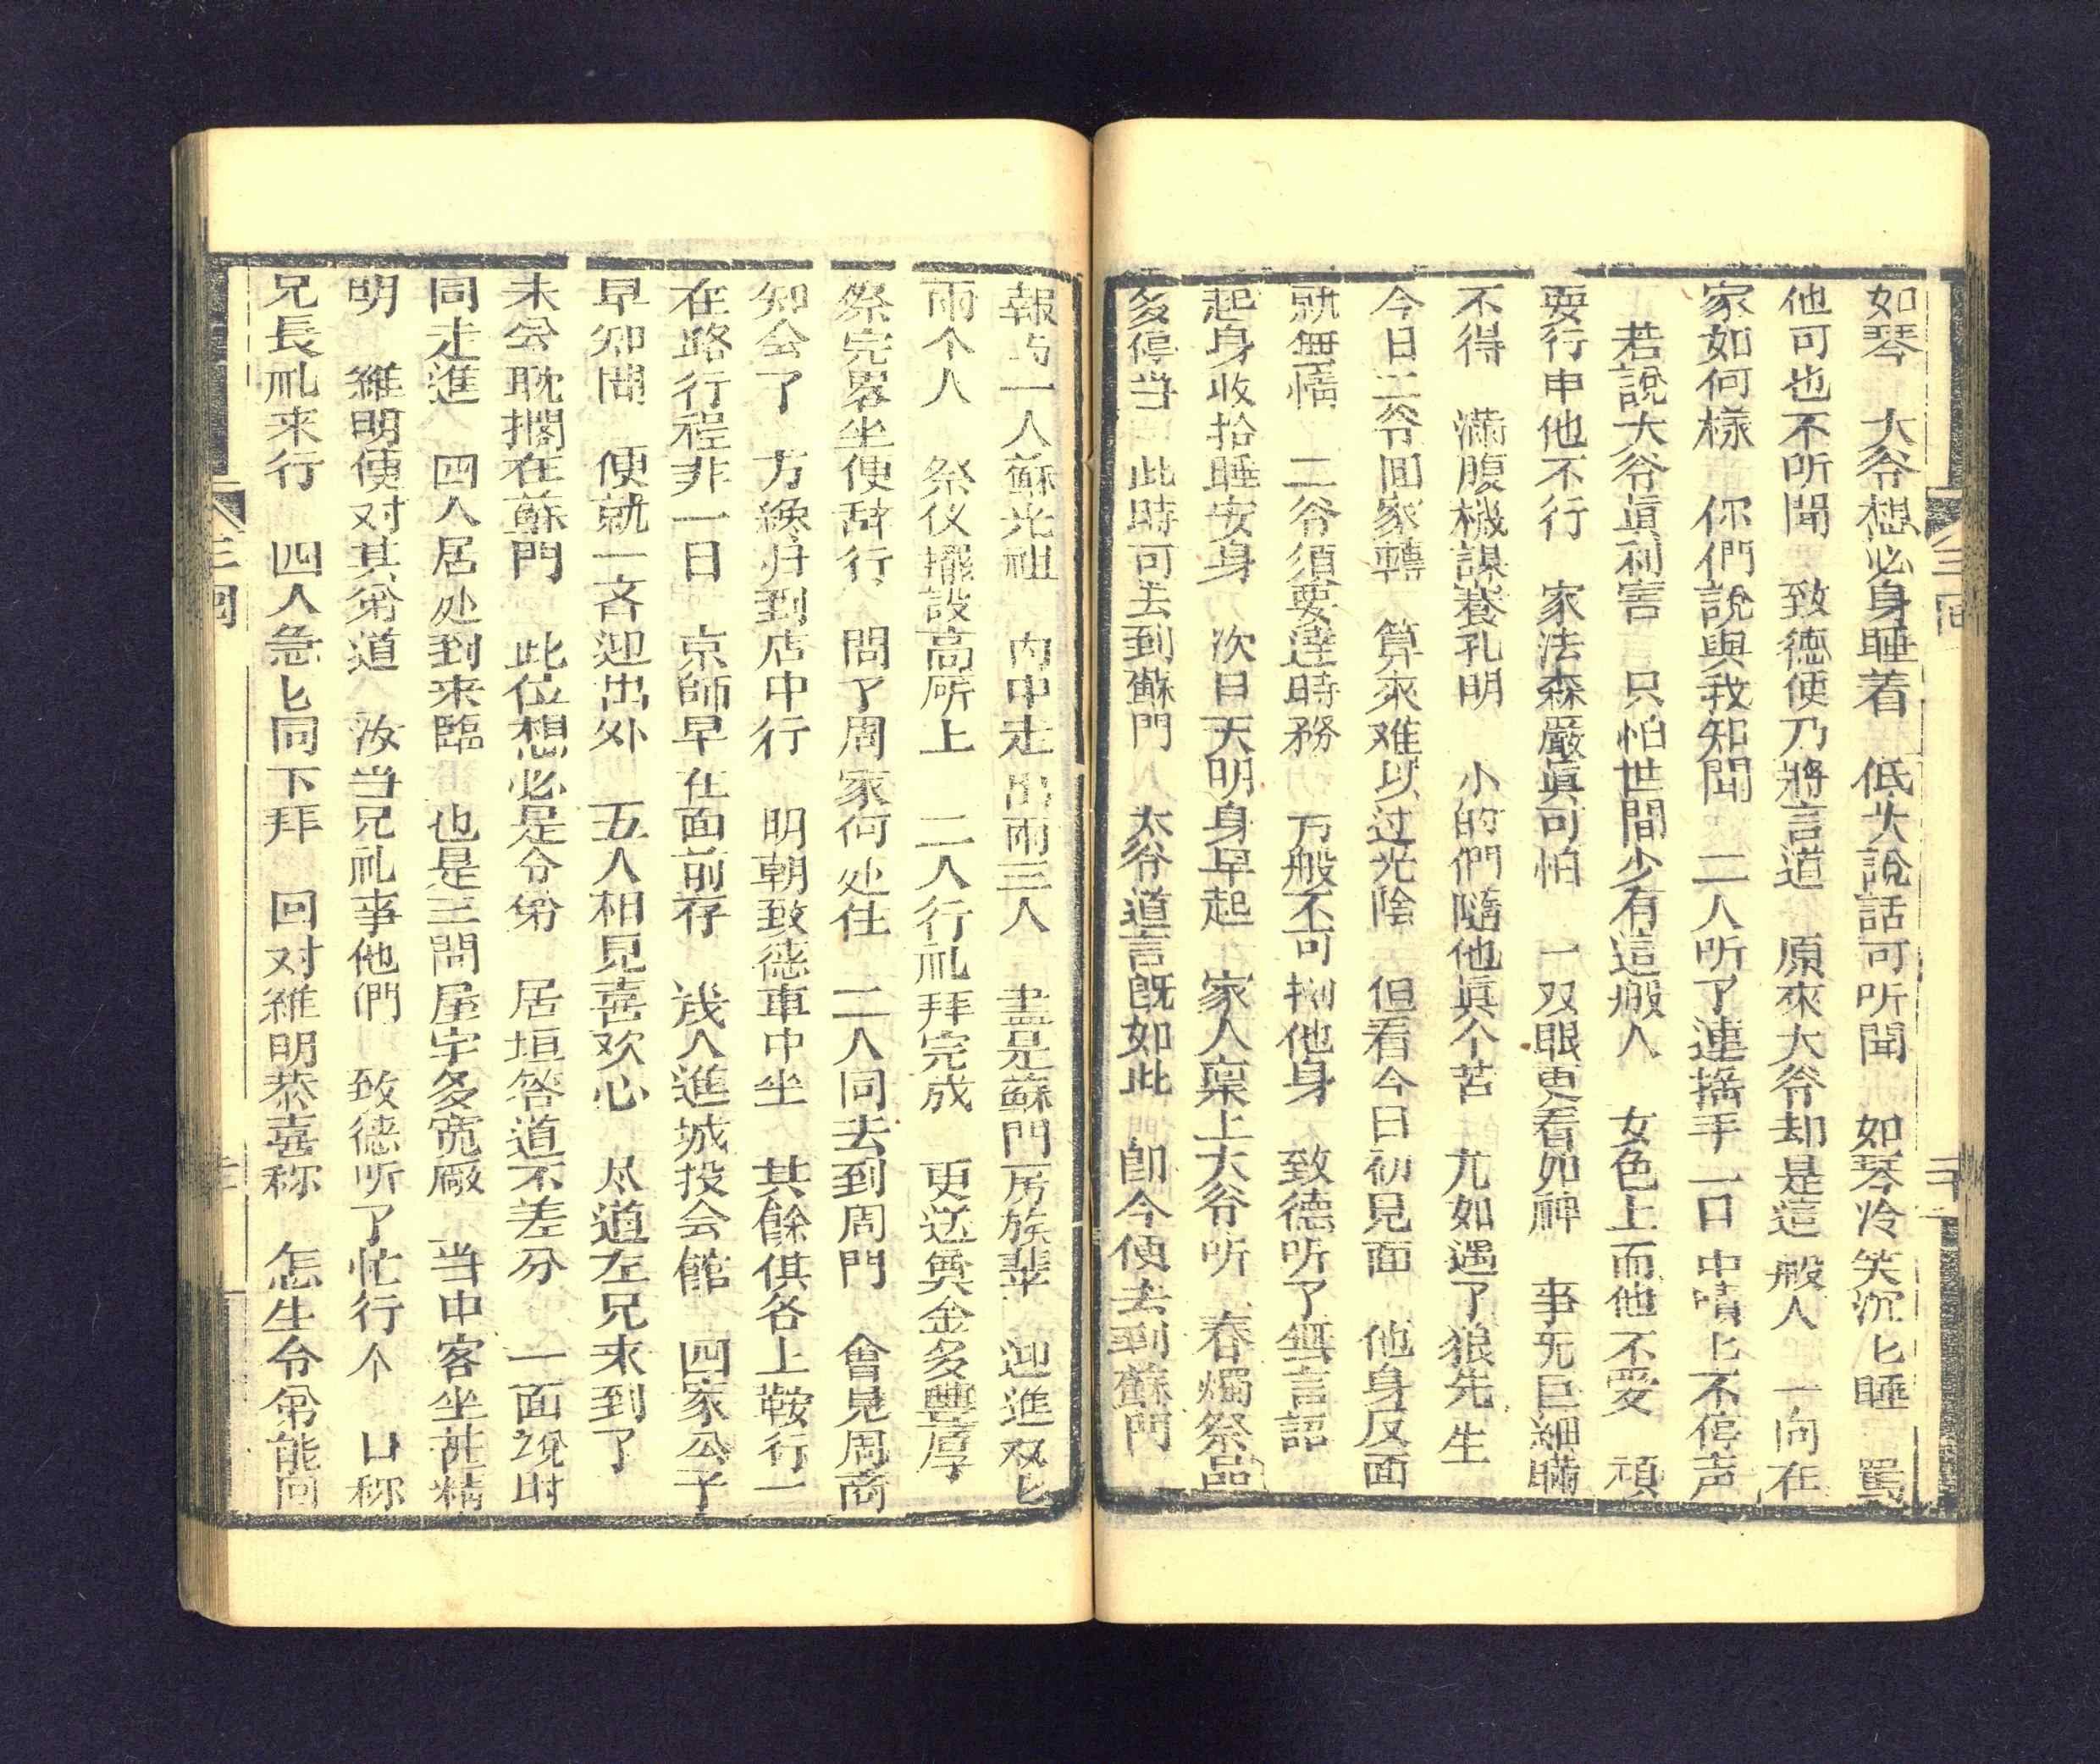 如琴　大爷想必身睡着　低头說話可听聞　如琴冷笑沉匕睡　罵
他可也不听聞　致德便乃將言道　原來大爷却是這般人　一向在
家如何樣　你們說與我知聞　二人听了連搖手　一口中嘖匕不停声
若說大爷真利害　只怕世間少有這般人　女色上而他不愛　頑
耍行中他不行　家法森嚴眞可怕　一双眼更看如神　事无巨細瞞
不得　滿腹機謀賽孔明　小的們隨他眞个苦　尤如遇了狼先生
今日二爷囬家轉　算來难以过光陰　但看今日初見面　他身反面
就無情　二爷須要達時務　万般不可拗他身　致德听了無言語
起身收拾睡安身　次日天明身早起　家人稟上大爷听　春燭祭品
多停当　此時可去到蘇門　大爷道言旣如此　卽今便去到蘇門
報与一人蘇光祖　内中走出兩三人　盡是蘇門房族輩　迎進双匕
兩个人　祭仪擺設高所上　二人行礼拜完成　更送奠金多豐厚
祭完畧坐便辞行　問了周家何处住　二人同去到周門　會見周商
知会了　方纔归到店中行　明朝致德車中坐　其餘俱各上鞍行一
在路行程非一日　京師早在面前存　幾人進城投会館　四家公子
早知聞　便就一齐迎出外　五人相見喜欢心　尽道左兄来到了
未会耽擱在蘇門　此位想必是令弟　居垣答道不差分　一面說时
同走進　四人居处到来臨　也是三間屋宇多寬廠　当中客坐甚精
明　維明便对其弟道　汝当兄礼事他們　致德听了忙行个　口称
兄長礼来行　四人急匕同下拜　回对維明恭喜称　怎生令弟能同